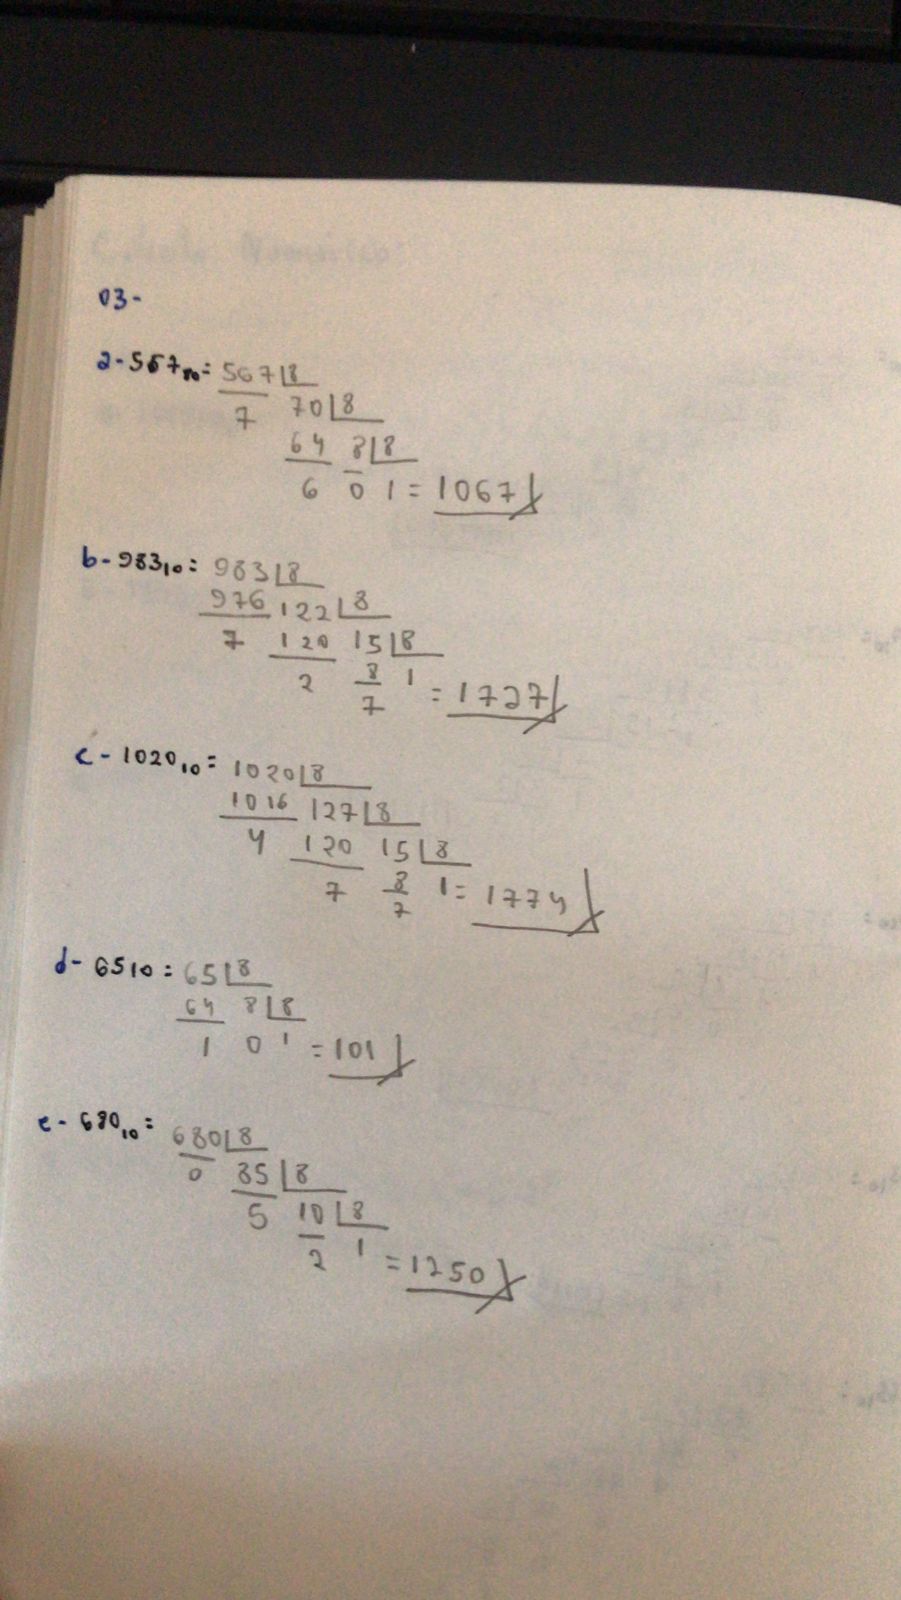 03-
a-567₁₀= 567 8
7 70 8
64 8 8
6 0 1 = 1067
b-983₁₀= 983 8
976 122 8
7 120 15 8
2 8 1
7 = 1727
c-1020₁₀= 1020 8
1016 127 8
4 120 15 8
7 8 1= 1774
7
d-65₁₀= 65 8
64 8 8
1 0 1 = 101
e-680₁₀= 680 8
0 85 8
5 10 8
2 1 = 1250